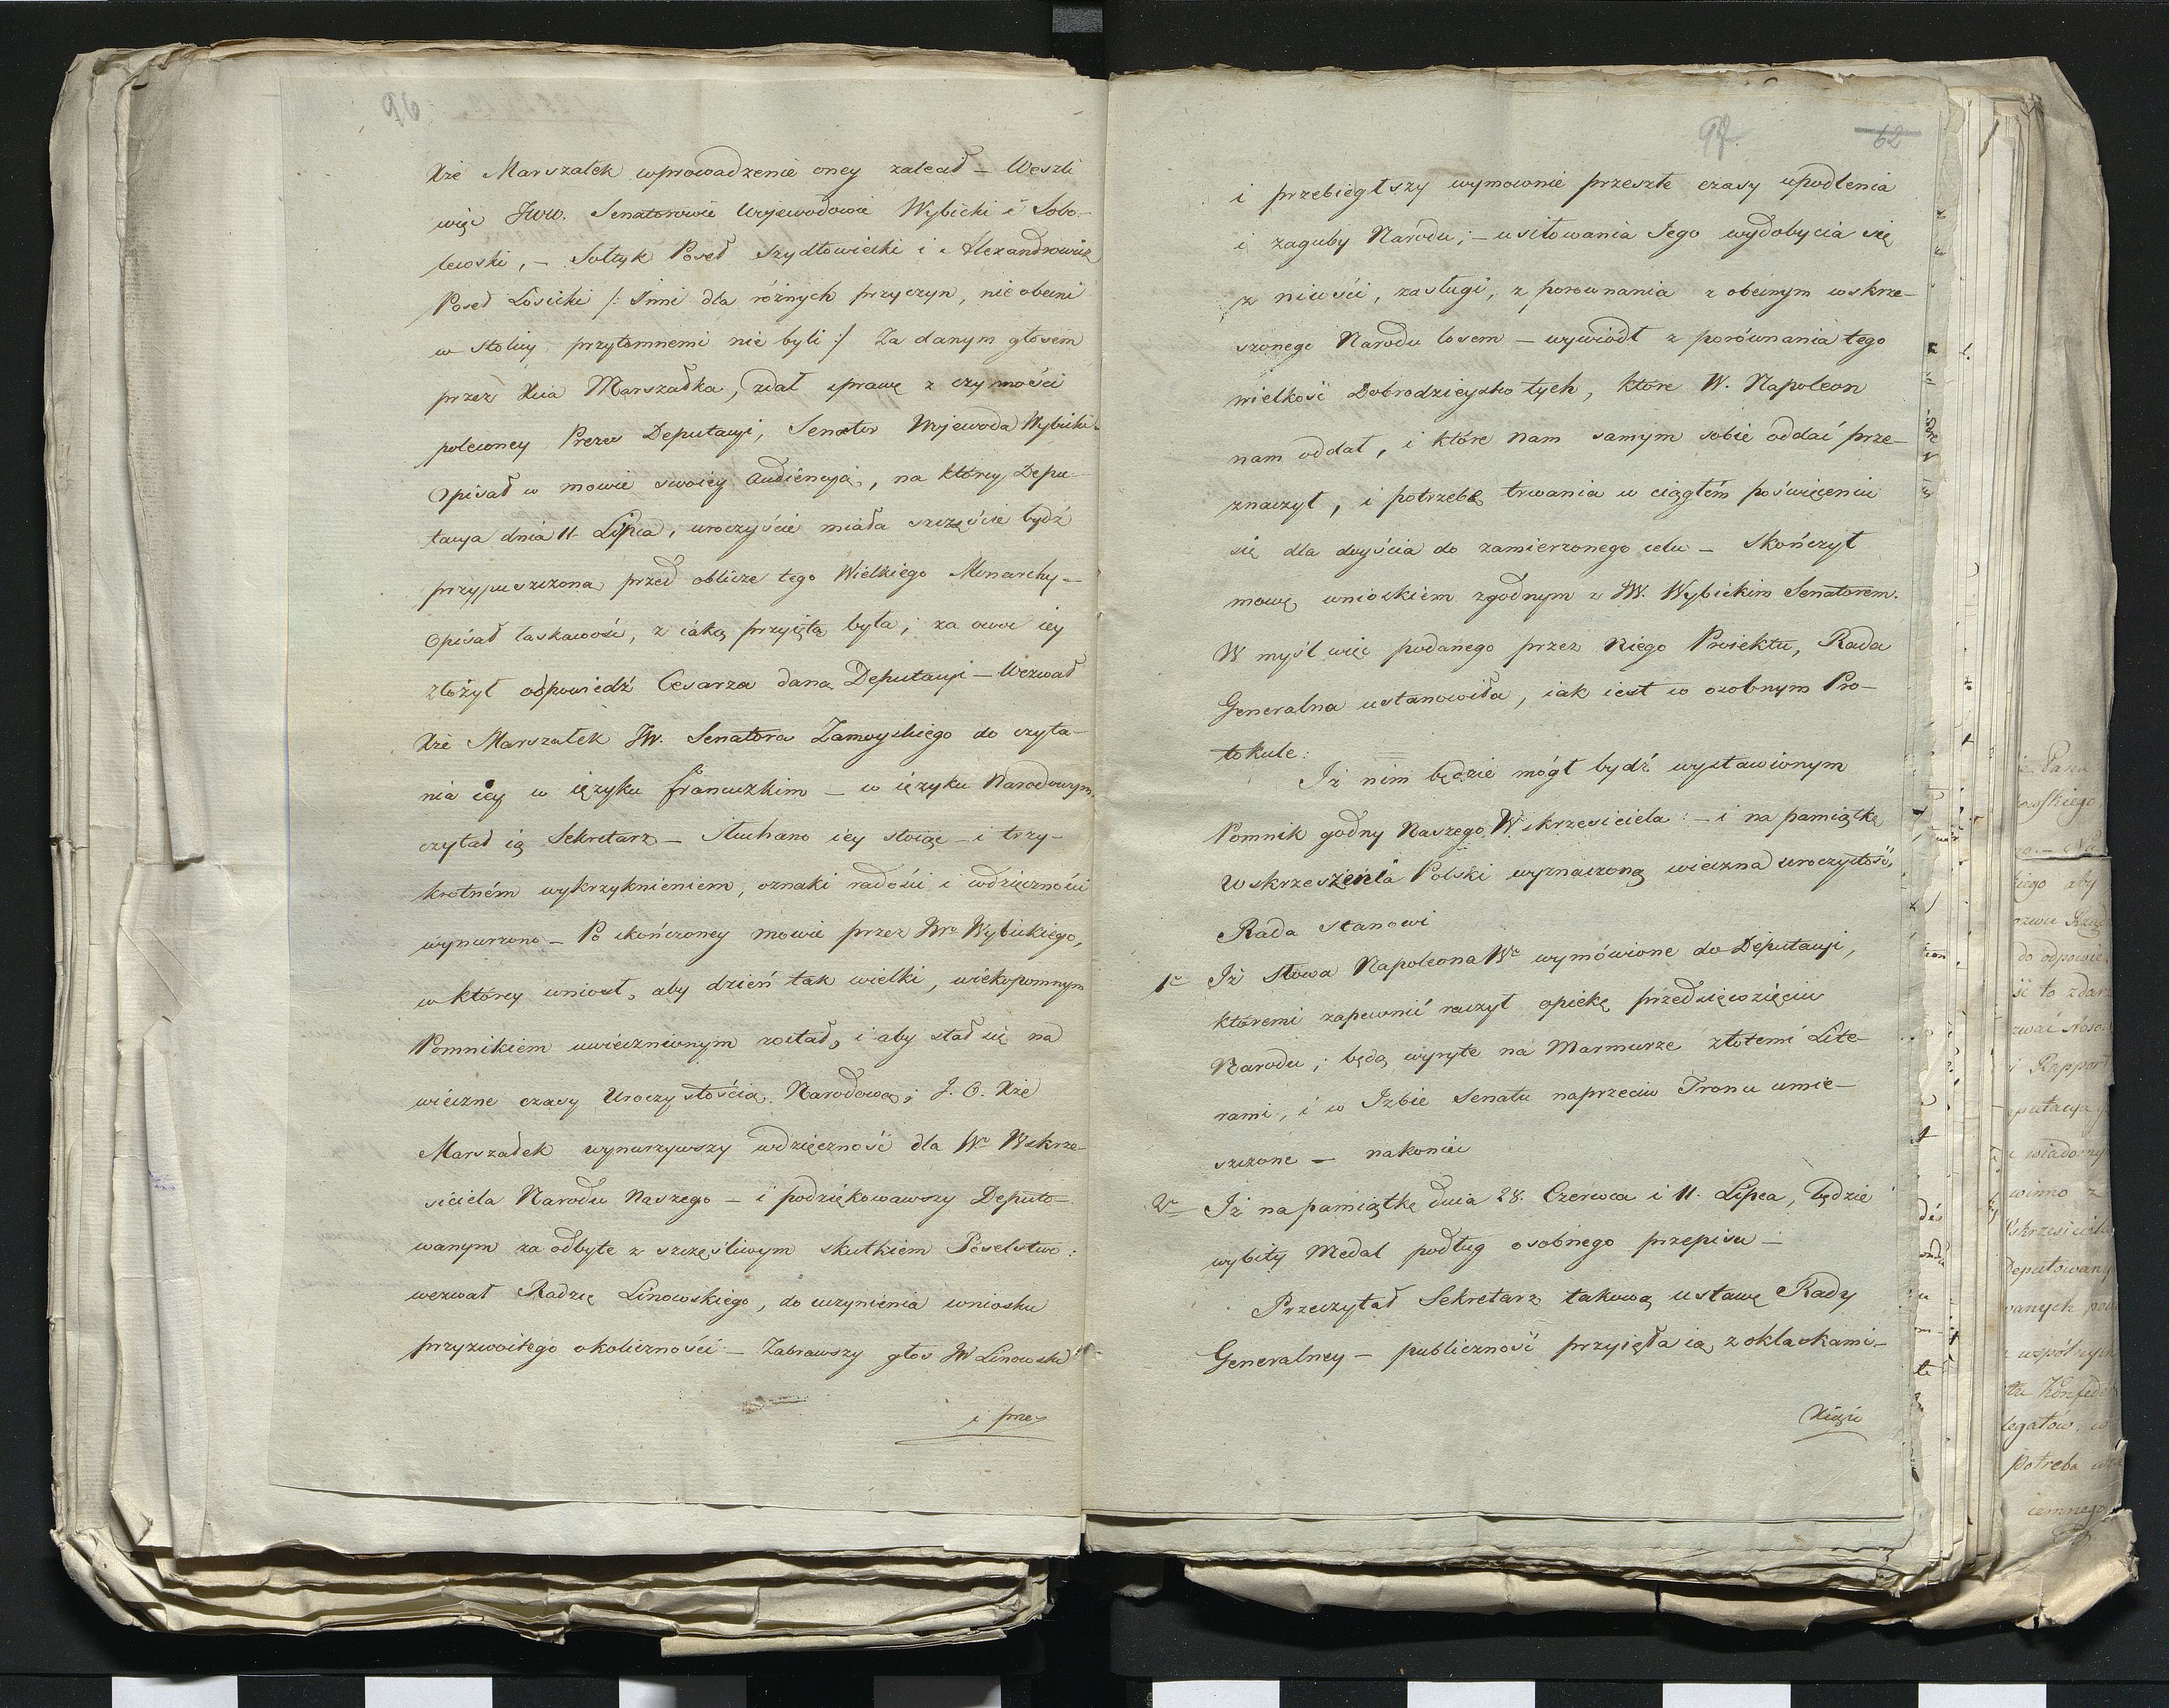 96
Xże Marszałek wprowadzenie oney zalecił – Weszli
więc JWW. Senatorowie Wojewodowie Wybicki i Sobo-
lewski, – Sołtyk Poseł Szydłowiecki i Alexandrowicz
Poseł Łosicki /: Inni dla różnych przyczyn, nieobecni
w stolicy przytomnemi nie byli :/ Za danym głosem
przez Xcia Marszałka, zdał sprawę z czynności
poleconey Prezes Deputacyi, Senator Wojewoda Wybicki.
Opisał w mowie swoiey Audiencyą, na którey Depu-
tacya dnia 11. Lipca, uroczyście miała szczęście bydź
przypuszczoną przed oblicze tego Wielkiego Monarchy –
Opisał łaskawość, z iaką przyiętą była; za owoc iey
złożył odpowiedź Cesarza daną Deputacyi – Wezwał
Xże Marszałek JW. Senatora Zamoyskiego do czyta-
nia iey w ięzyku francuzkim – w ięzyku Narodowym
czytał ią Sekretarz – Słuchano iey stoiąc – i trzy-
krotném wykrzyknieniem, oznaki radości i wdzięczności
wynurzono – Po skończoney mowie przez JWo Wybickiego,
w którey wniosł, aby dzień tak wielki, wiekopomnym
Pomnikiem uwiecznionym został, i aby stał się na
wieczne czasy Uroczystością Narodową; J. O. Xże
Marszałek wynurzywszy wdzięczność dla Wo Wskrze-
siciela Narodu Naszego – i podziękowawszy Deputo-
wanym za odbyte z szczęśliwym skutkiem Poselstwo:
wezwał Radzcę Linowskiego, do uczynienia wniosku
przyzwoitego okoliczności – Zabrawszy głos JW Linowski
i prze
97. 62
i przebiegłszy wymownie przeszłe czasy upodlenia
i zaguby Narodu; – usiłowania Jego wydobycia się
z nicości, zasługi, z porownania z obecnym wskrze-
szonego Narodu losem – wywiódł z porównania tego
wielkość Dobrodzieystw tych, które W. Napoleon
nam oddał, i które nam samym sobie oddać prze-
znaczył, i potrzebę trwania w ciągłém poświęceniu
się dla doyścia do zamierzonego celu – Skończył
mowę wnioskiem zgodnym z JW. Wybickim Senatorem.
W myśl więc podanego przez Niego Proiektu, Rada
Generalna ustanowiła, iak iest w osobnym Pro-
tokule:
Iż nim będzie mógł bydź wystawionym
Pomnik godny Naszego Wskrzesiciela: – i na pamiątkę
Wskrzeszenia Polski wyznaczoną wieczna uroczystość,
Rada stanowi
1o Iż słowa Napoleona Wo wymówione do Deputacyi,
któremi zapewnić raczył opiekę przedsięwzięciu
Narodu; będą wyryte na Marmurze złotemi Lite-
rami, i w Izbie Senatu naprzeciw Tronu umie-
szczone – nakoniec
2o Iż na pamiątkę dnia 28. Czerwca i 11. Lipca, będzie
wybity Medal podług osobnego przepisu –
Przeczytał Sekretarz takową ustawę Rady
Generalney – publiczność przyięła ią z oklaskami –
Xiąże